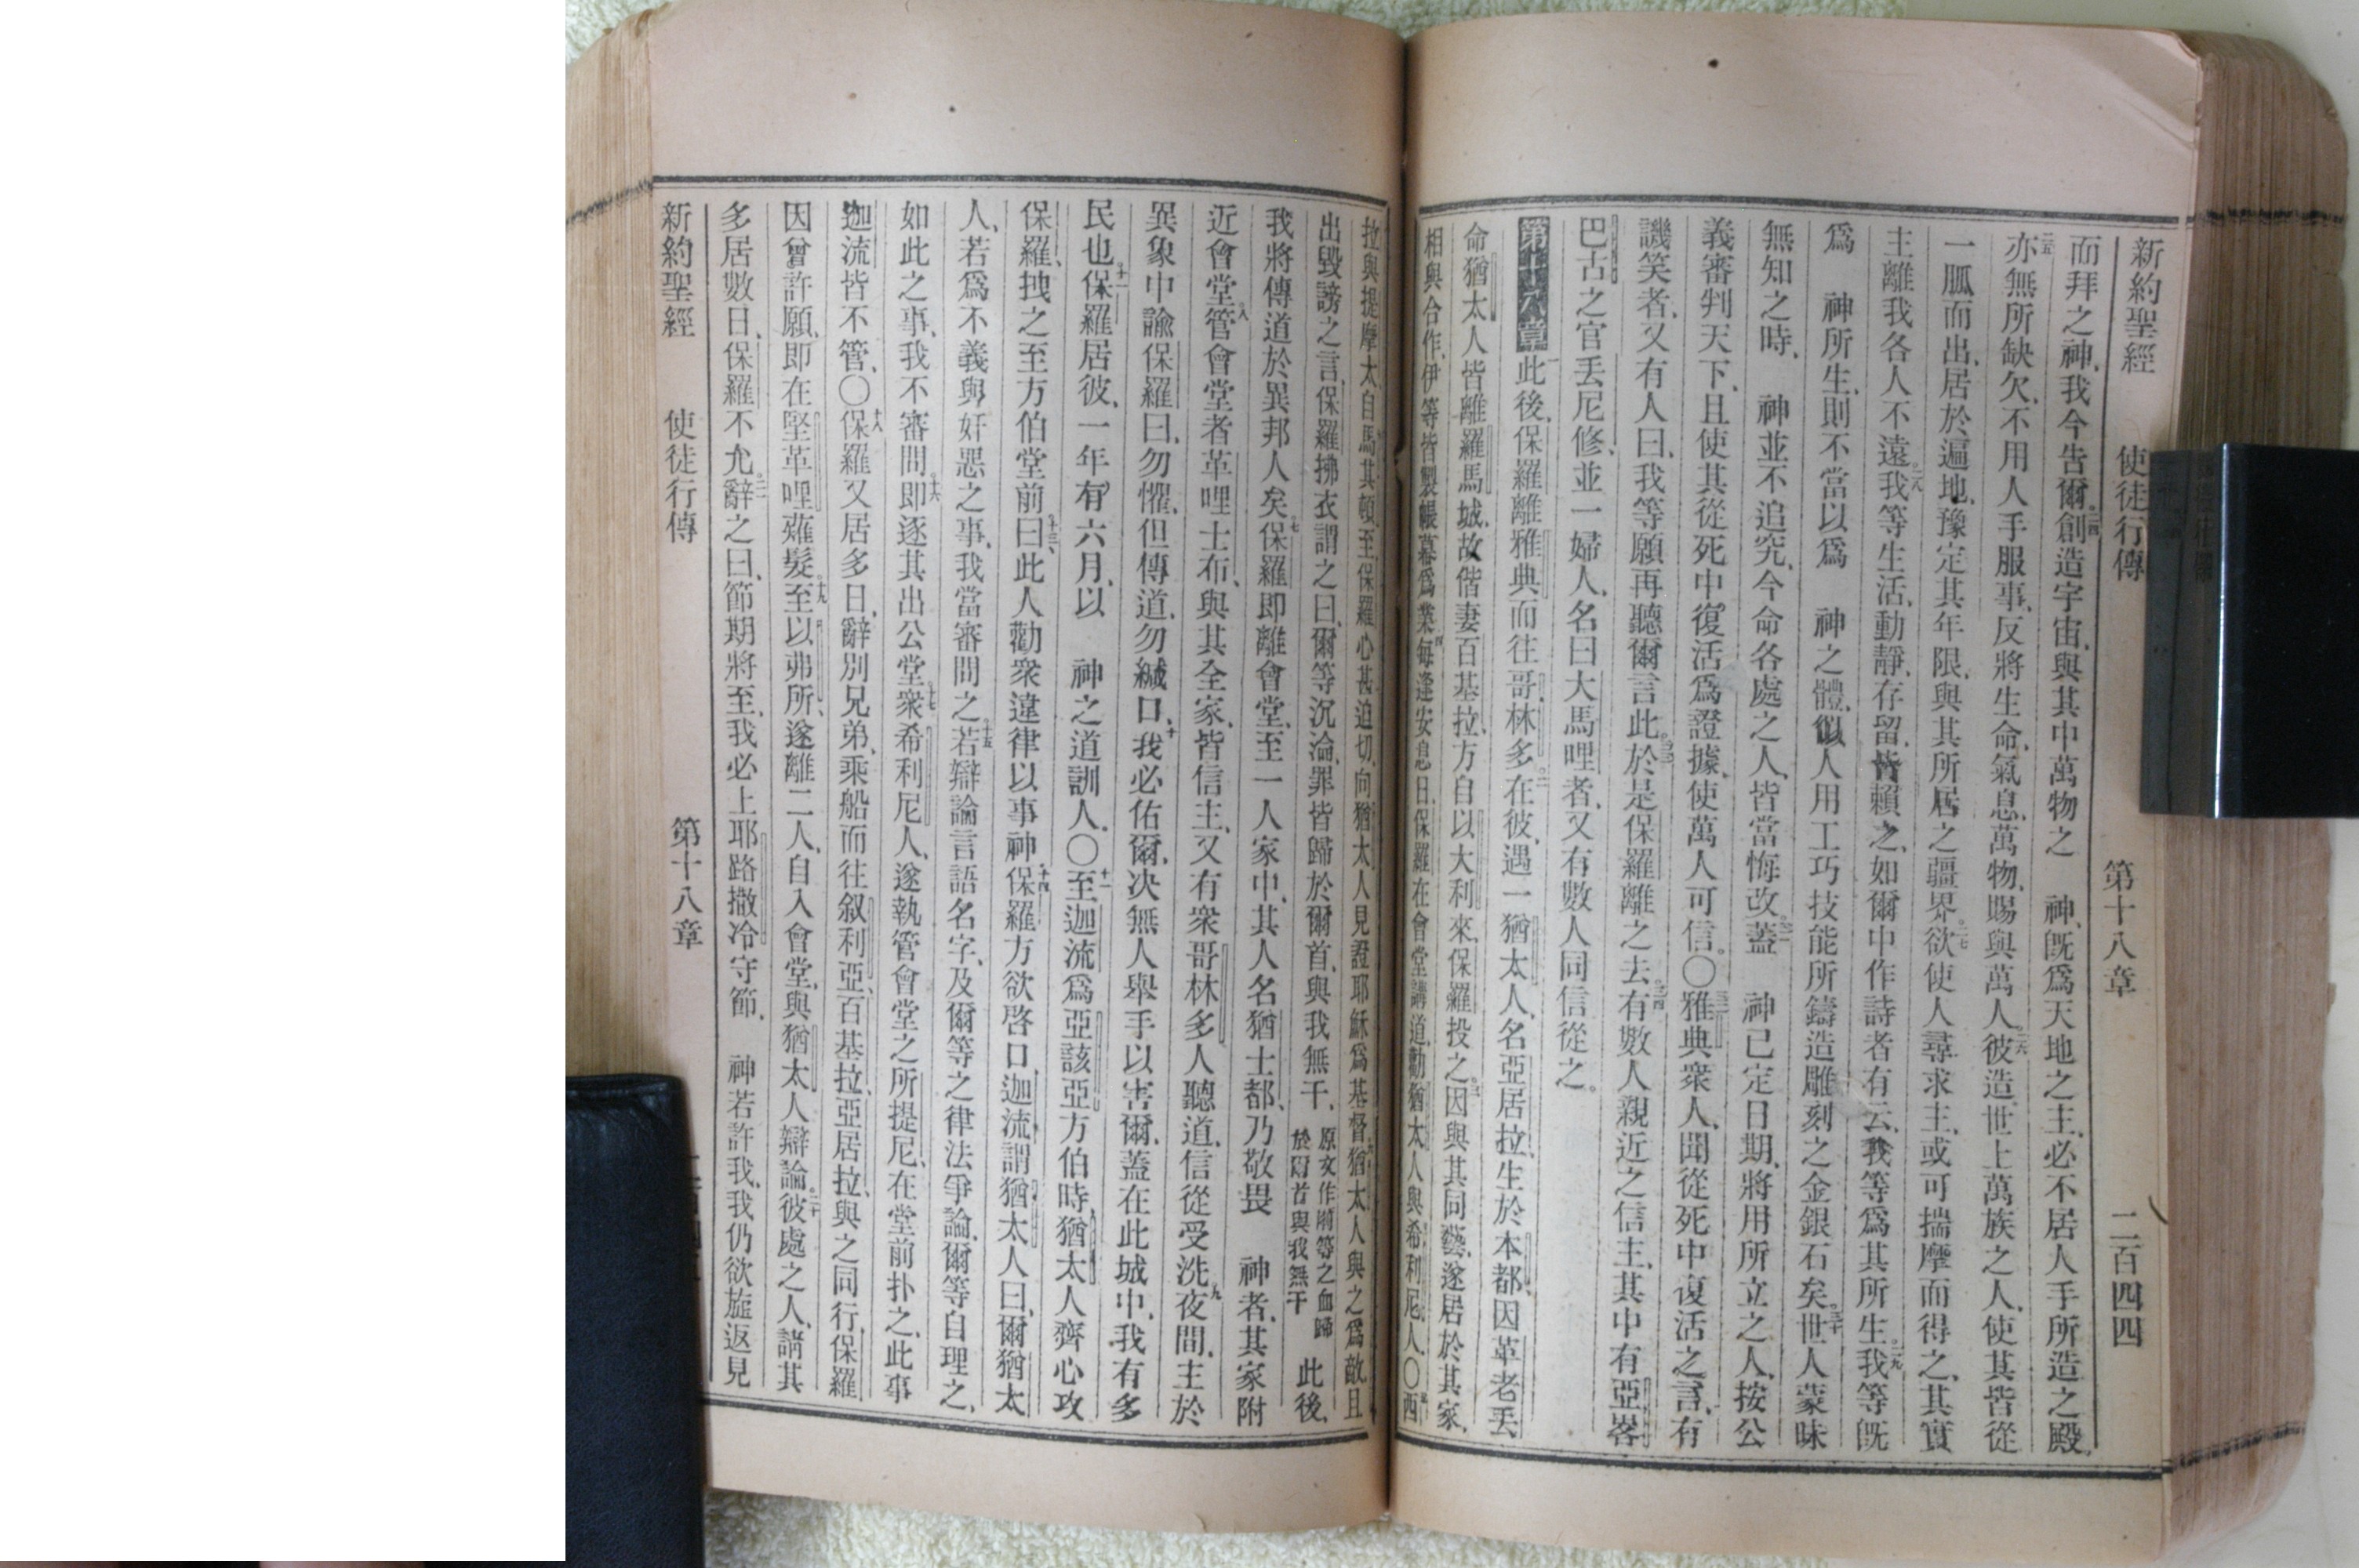 新約聖經 使徒行傳 第十八章 二百四四
而拜之神、我今告爾。二四創造宇宙、與其中萬物之 神、旣爲天地之主、必不居人手所造之殿、
二五亦無所缺欠、不用人手服事、反將生命、氣息、萬物、賜與萬人。二六彼造世上萬族之人、使其皆從
一脈而出、居於遍地、豫定其年限、與其所居之疆界。二七欲使人尋求主、或可揣摩而得之、其實
主離我各人不遠。二八我等生活、動靜、存留、皆賴之、如爾中作詩者有云、我等爲其所生。二九我等旣
爲 神所生、則不當以爲 神之體、似人用工巧技能所鑄造雕刻之金銀石矣。三十世人蒙昧
無知之時、 神並不追究、今命各處之人、皆當悔改。三一蓋 神已定日期、將用所立之人、按公
義審判天下、且使其從死中復活爲證據、使萬人可信。〇三二雅典衆人、聞從死中復活之言、有
譏笑者、又有人曰、我等願再聽爾言此。三三於是保羅離之去。三四有數人親近之信主、其中有亞畧
巴古之官丟尼修、並一婦人、名曰大馬哩者、又有數人同信從之。
第十八章 一此後、保羅離雅典而往哥林多。二在彼、遇一猶太人、名亞居拉、生於本都、因革老丟
命猶太人皆離羅馬城、故偕妻百基拉、方自以大利來、保羅投之。三因與其同藝、遂居於其家、
相與合作、伊等皆製帳幕爲業。四每逢安息日、保羅在會堂講道、勸猶太人與希利尼人。〇五西
拉與提摩太、自馬其頓至、保羅心甚迫切、向猶太人見證耶穌爲基督。六猶太人與之爲敵、且
出毀謗之言、保羅拂衣謂之曰、爾等沉淪、罪皆歸於爾首、與我無干、原文作爾等之血歸於爾首與我無干 此後、
我將傳道於異邦人矣。七保羅卽離會堂、至一人家中、其人名猶士都、乃敬畏 神者、其家附
近會堂。八管會堂者革哩士布、與其全家、皆信主、又有衆哥林多人聽道、信從受洗。九夜間、主於
異象中諭保羅曰、勿懼、但傳道、勿緘口。十我必佑爾、决無人舉手以害爾、蓋在此城中、我有多
民也。十一保羅居彼、一年有六月、以 神之道訓人。〇十二至迦流爲亞該亞方伯時、猶太人齊心攻
保羅、拽之至方伯堂前。十三曰、此人勸衆違律以事神。十四保羅方欲啓口、迦流謂猶太人曰、爾猶太
人、若爲不義與奸惡之事、我當審問之。十五若辯論言語名字、及爾等之律法爭論、爾等自理之、
如此之事、我不審問。十六卽逐其出公堂。十七衆希利尼人、遂執管會堂之所提尼、在堂前扑之、此事
迦流皆不管。〇十八保羅又居多日、辭別兄弟、乘船而往叙利亞、百基拉、亞居拉、與之同行、保羅
因曾許願、卽在堅革哩薙髮。十九至以弗所、遂離二人、自入會堂、與猶太人辯論。二十彼處之人、請其
多居數日、保羅不允。二一辭之曰、節期將至、我必上耶路撒冷守節、 神若許我、我仍欲旋返見
新約聖經 使徒行傳 第十八章